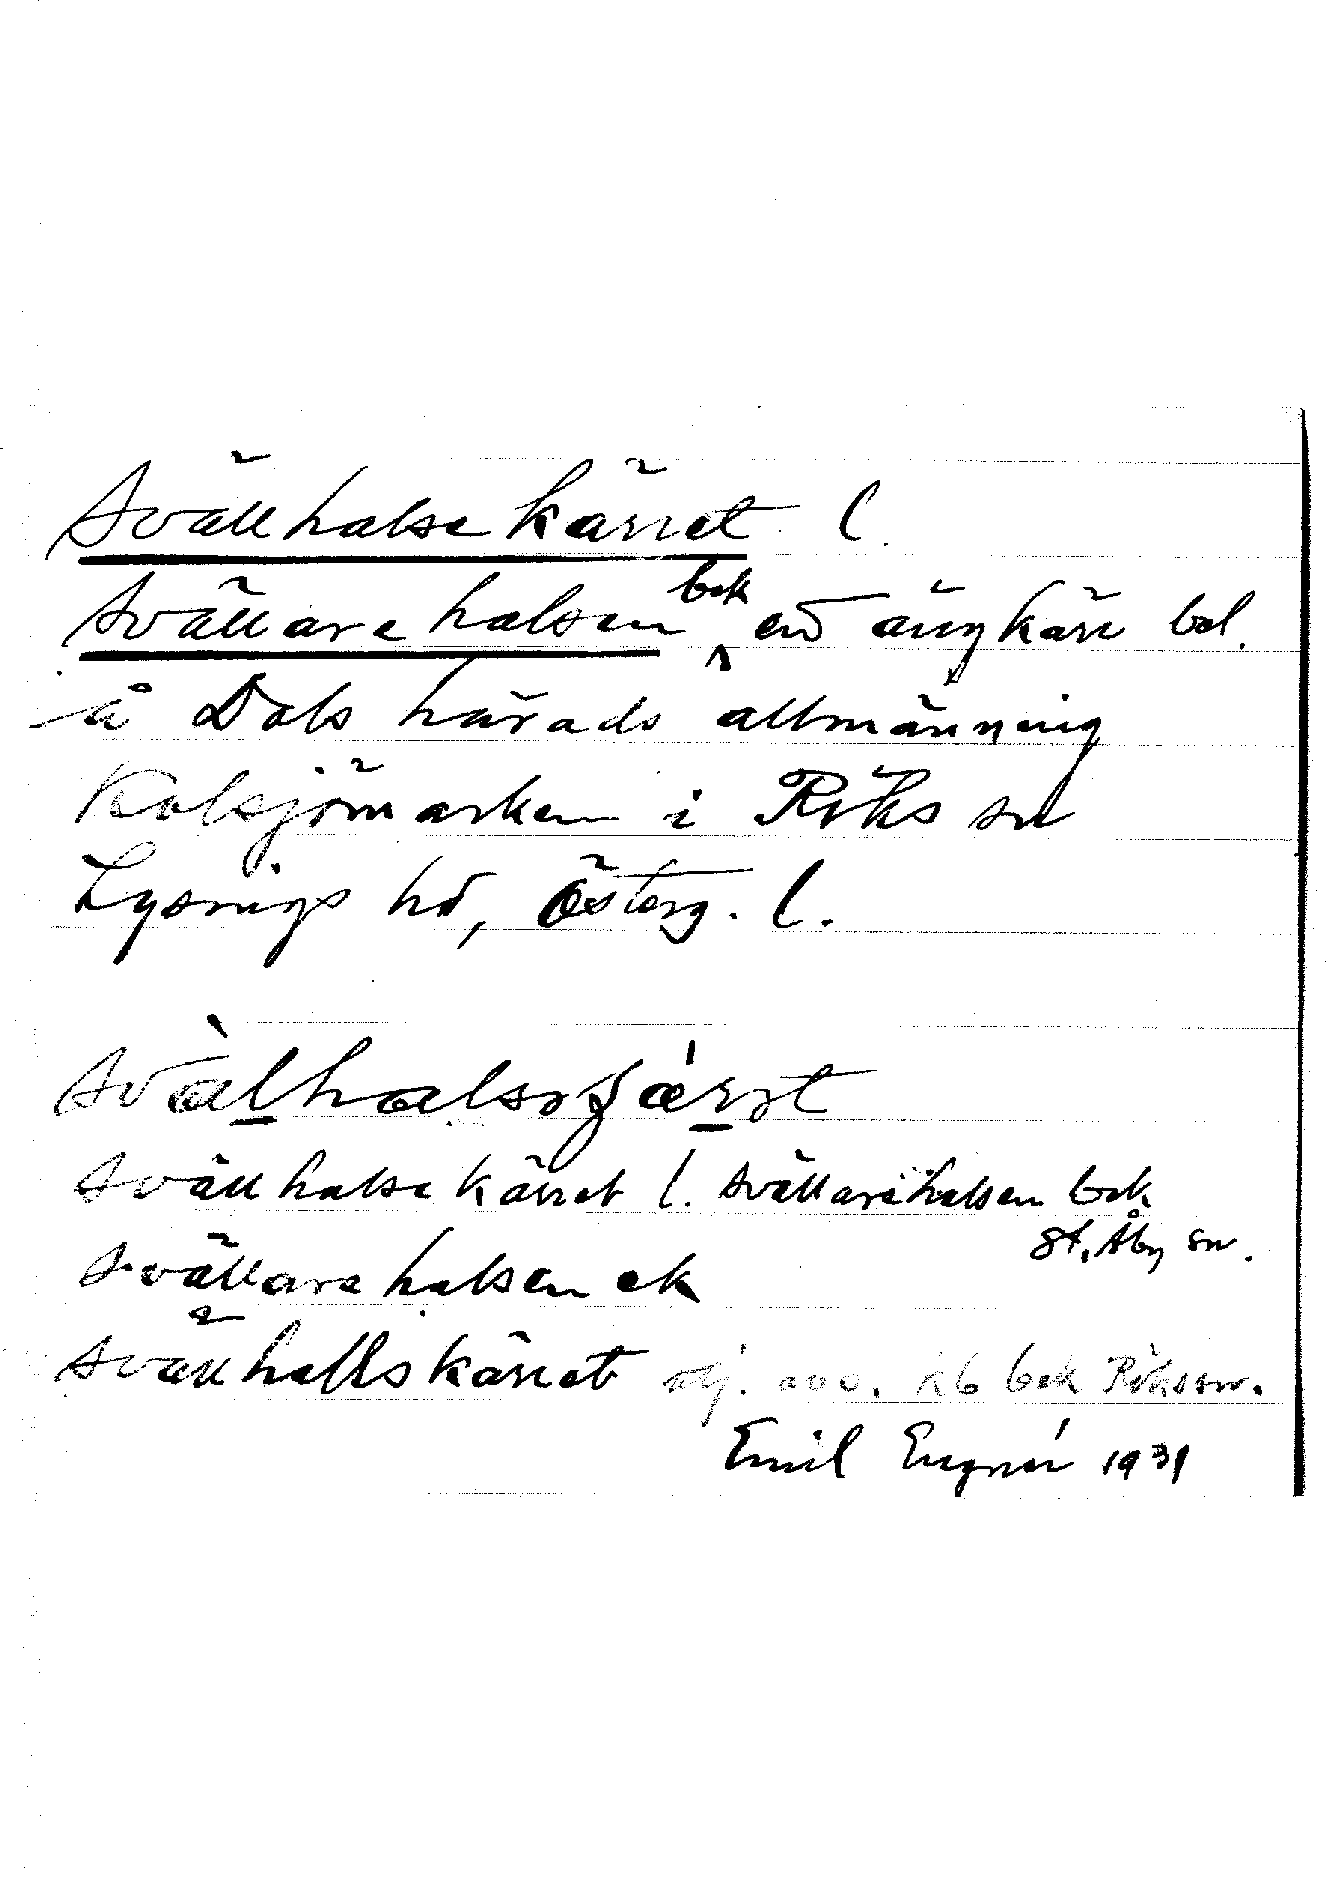 Svällhalsekärret l.
Svällarehalsen bek en ängkärr bel.
å Dals härads allmänning
Kolsjömarken i Röks sn
Lysings hd, Österg. l.
svälhalsə
Svällhalsekärret l. Svällarehalsen bek
St. Åby sn.
Svällarehalsen ek
Svällhallskärret obj. ooo. kb bek Röks sn.
Emil Engnér 1931